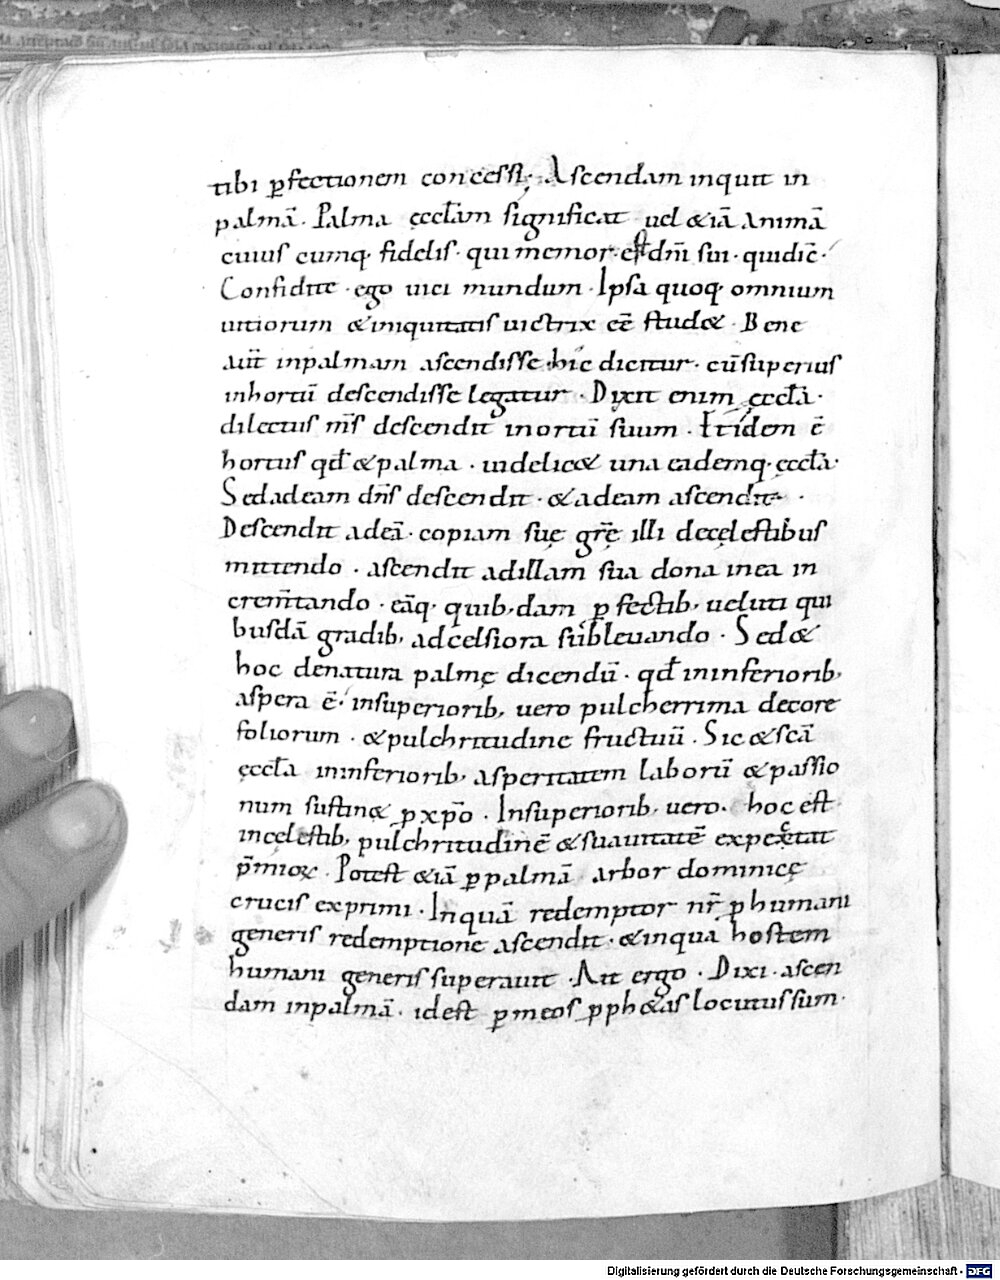 tibi ꝑfectionem concessi; Ascendam inquit in
palmā. Palma ęccl̄am significat uel &iā animā
cuius cumq; fidelis· qui memor· est dn̄i sui· qui dic̄·
Confidite· ego uici mundum· Ipsa quoq; omnium
uitiorum &iniquitatis uictrix eē stud&· Bene
aut̄ inpalmam ascendisse hic dicitur· cūsuperius
inhortū descendisse legatur· Dixit enim ęccl̄a·
dilectus m̄s descendit inortū suum· Et idem ē
hortus qd̄ &palma· uidelic& una eademq; ęccl̄a·
Sedadeam dn̄s descendit· &adeam ascendit·
Descendit adeā· copiam suę gr̄ę illi decęlestibus
mittendo· ascendit adillam sua dona inea in
crem̄tando· eāq; quib;dam ꝑfectib; ueluti qui
busdā gradib; adcelsiora subleuando· Sed&
hoc denatura palmę dicendū· qd̄ ininferiorib;
aspera ē· insuperiorib; uero pulcherrima decore
foliorum· &pulchritudine fructuū· Sic&scā
ęccl̄a ininferiorib; asperitatem laborū &passio
num sustin& ꝑ xp̄o· Insuperiorib; uero· hoc est
incęlestib; pulchritudinē &suauitatē expectat
p̄mioꝝ· Potest &iā ꝑpalmā arbor dominicę
crucis exprimi· Inquā redemptor nr̄ ꝑ humani
generis redemptione ascendit· &inqua hostem
humani generis superauit· Ait ergo· Dixi· ascen
dam inpalmā· idest ꝑmeos ꝓph&as locutussum·
Digitalisierung gefördert durch die Deutsche Forschungsgemeinschaft - DFG